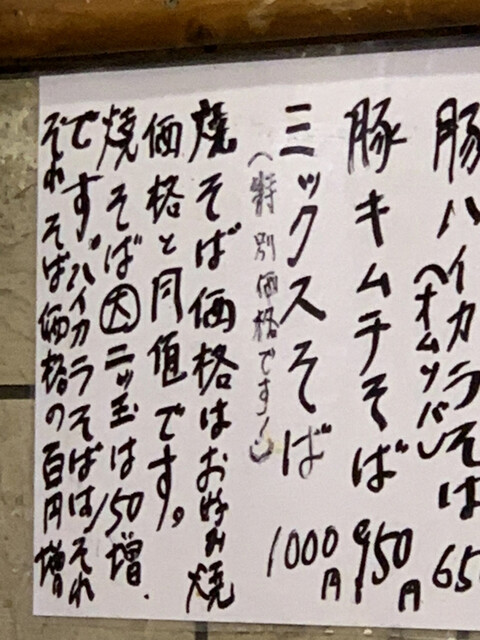 豚ハイカラそば 65
(オムソバ)
豚キムチそば 950円
ミックスそば 1000円
(特別価格です!)
焼そば価格はお好み焼
価格と同値です。
焼そば大二ッ玉は150増.
です。ハイカラそばは、それ
ぞれそば価格の百円増